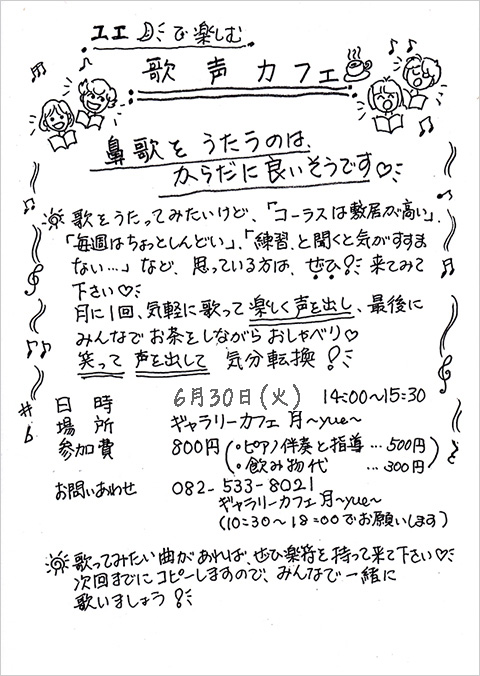 ユエ で楽しむ
歌声カフェ
鼻歌を うたうのは、
からだに良いそうです♡
歌をうたってみたいけど、「コーラスは敷居が高い」、
「毎週はちょっとしんどい」、「練習、と聞くと気がすすま
ない…」など、思っている方は、ぜひ! 来てみて
下さい♡
月に1回、気軽に歌って楽しく声を出し、最後に
みんなでお茶をしながらおしゃべり♡
笑って 声を出して 気分転換!
日時 6月30日(火) 14:00~15:30
場所 ギャラリーカフェ 月~yue~
参加費 800円(・ピアノ伴奏と指導…500円
・飲み物代 …300円)
お問いあわせ 082-533-8021
ギャラリーカフェ月~yue~
(10:30~18:00でお願いします)
歌ってみたい曲があれば、ぜひ楽符を持って来て下さい♡
次回までにコピーしますので、みんなで一緒に
歌いましょう!